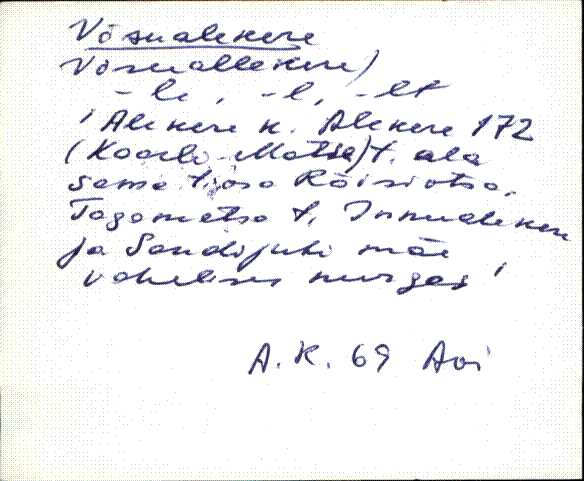 Võsualekere
Võsuallekere)
- le, - l, - lt
' Alekere k. Alekere 172
(Kaarli-Matse) t. ala
sama t. osa Räisiotsa,
Tagametsa t. Innualekere
ja Sandijuhi mäe
vahelises nurgas '
A. K. 69 Aoi